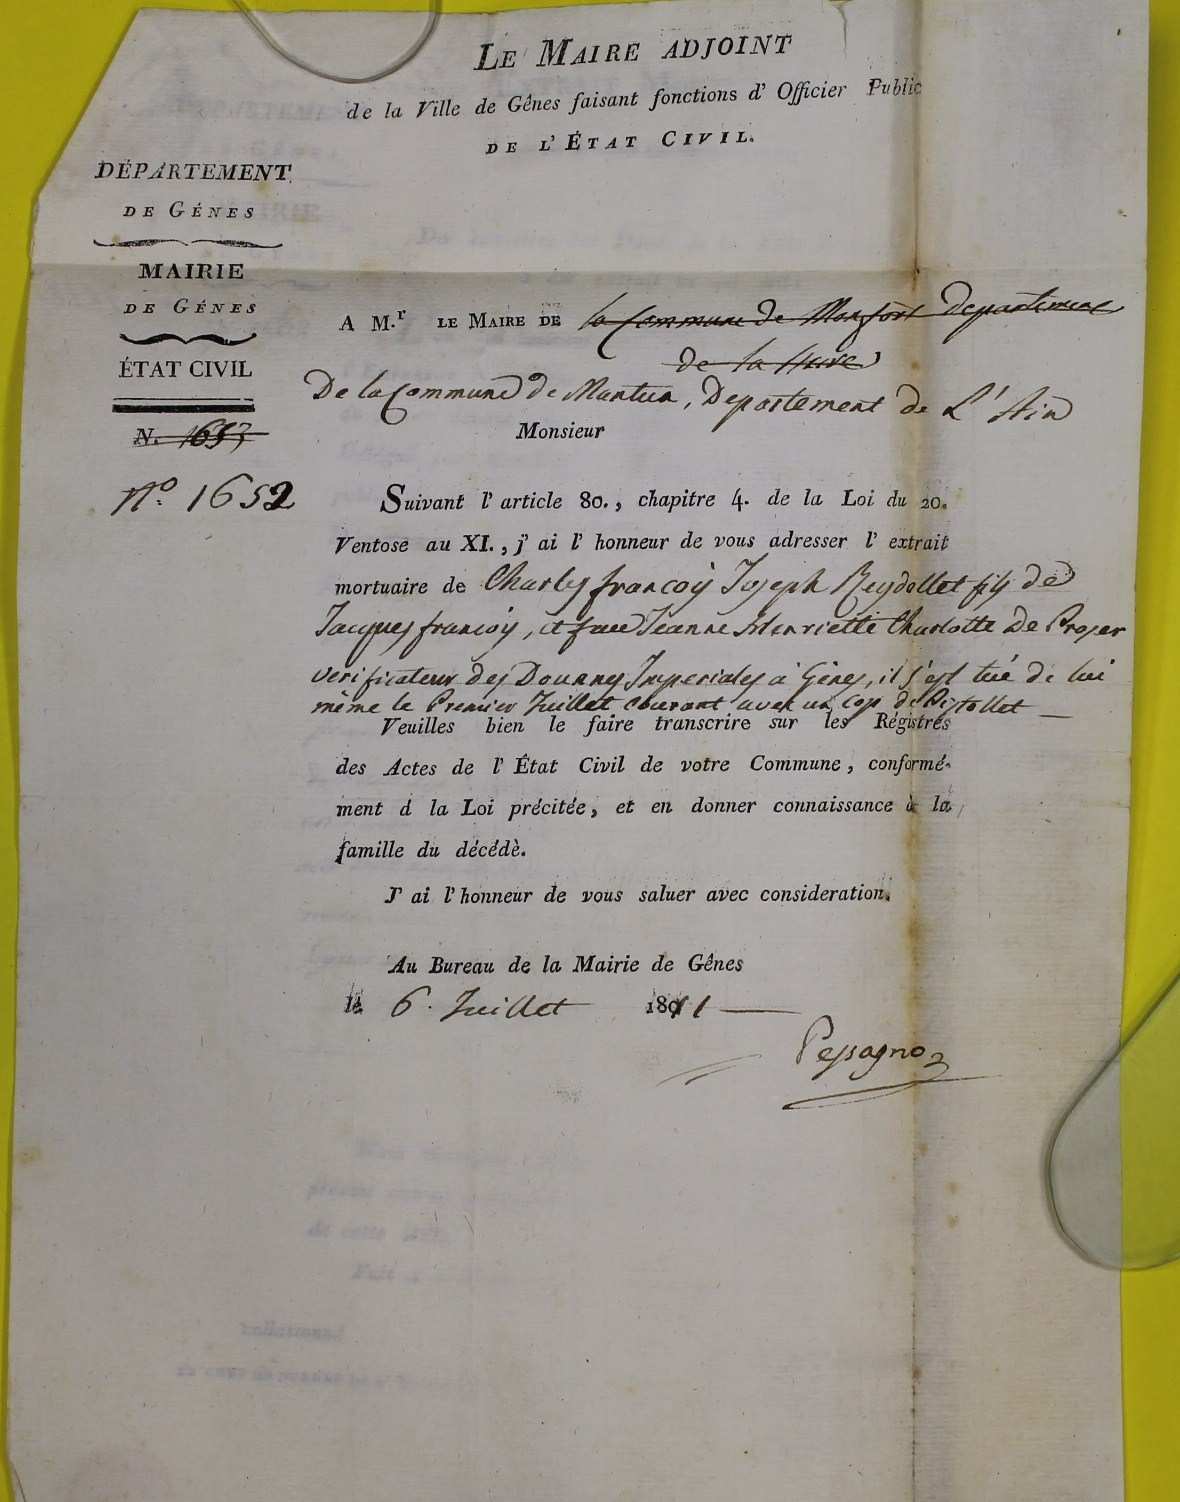 LE MAIRE ADJOINT
de la Ville de Gênes faisant fonctions d' Officier Public
DE L'ÉTAT CIVIL.
DÉPARTEMENT
DE GÉNES
MAIRIE
DE GÉNES
ÉTAT CIVIL
N. 1653
Nº. 1652
A M.r LE MAIRE DE la Commune de Monfort departement
de la
De la Commune de Nantua, Departement de L'Ain
Monsieur
Suivant l' article 80., chapitre 4. de la Loi du 20.
Ventose au XI., j' ai l' honneur de vous adresser l' extrait
mortuaire de Charles françois Joseph Reydellet fils de
Jacques françois, et Jeanne Henriette Charlotte De Proger
verificateur des Douanes Imperiales à Gênes, il s'est tué de lui
même le Premier Juillet courant avec un cop de Pistollet
Veuilles bien le faire transcrire sur les Régistres
des Actes de l' État Civil de votre Commune, conformé-
ment à la Loi précitée, et en donner connaissance à la
famille du décédè.
J' ai l' honneur de vous saluer avec consideration.
Au Bureau de la Mairie de Gênes
le 6. Juillet 1811
Pessagno